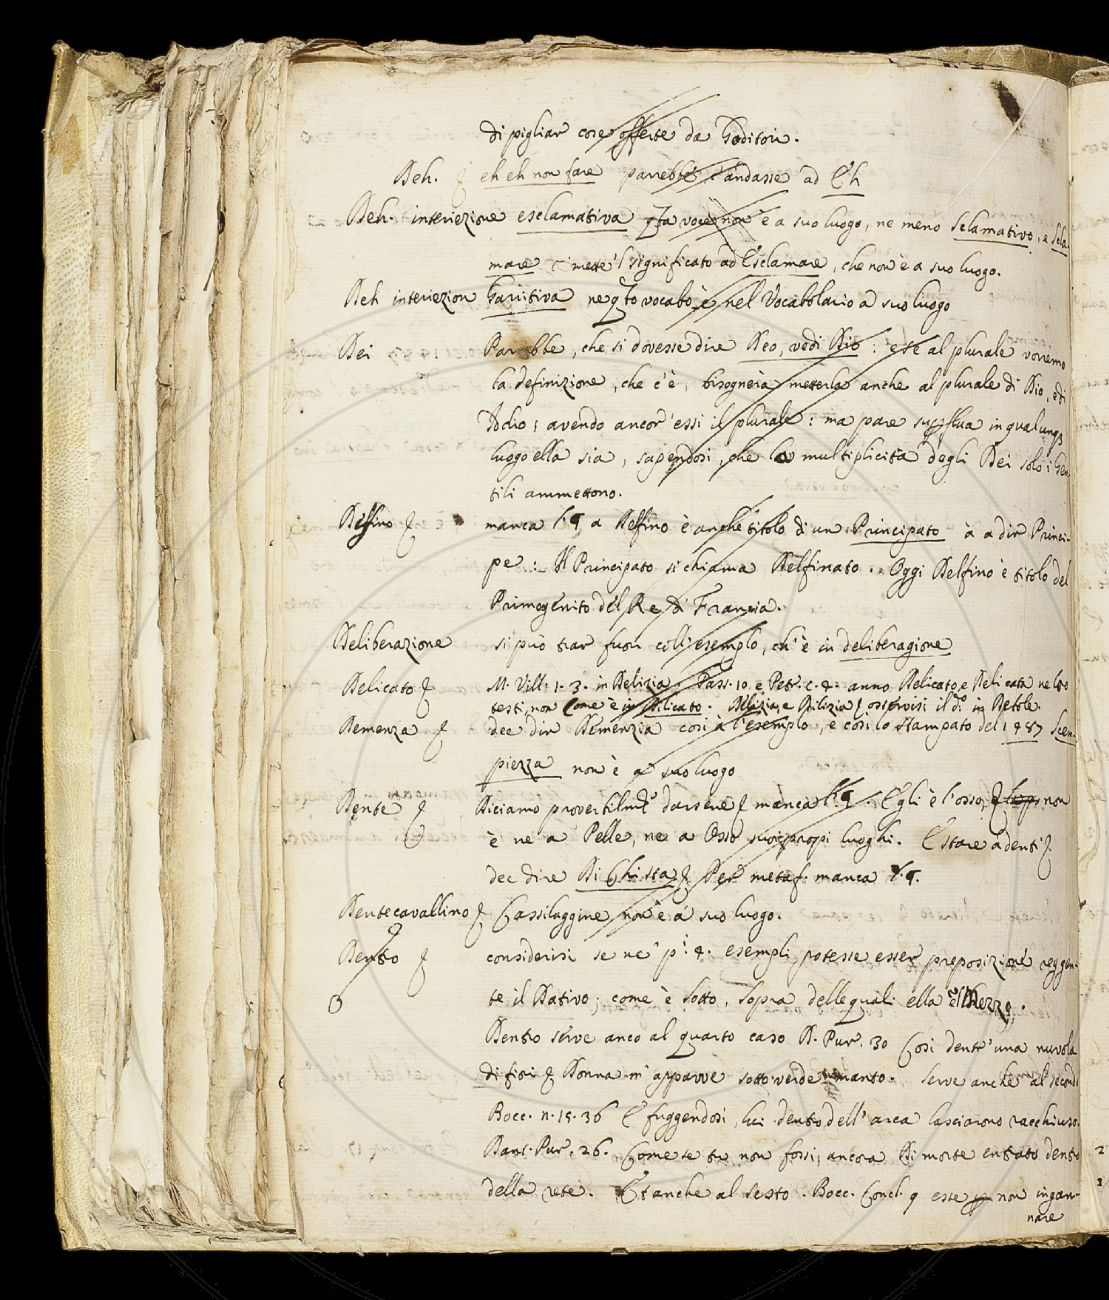 di pigliar cose offerte da Goditori.
Deh. & eh eh non fare parrebbe c'andasse ad Eh
Deh. interiezione esclamativa qta voce non è a suo luogo, ne meno sclamativo, e scla
mare c' mette 'l significato ad Esclamare, che non è a suo luogo.
Deh interiezion Garritiva ne qto vocabo è nel Vocabolario a suo luogo
Dei Parebbe, che si dovesse dire Deo, vedi Dio: e se al plurale vorremo
la definizione, che c'è, bisogneria metterla anche al plurale di Dio, e di
Iddio; avendo ancor' essi il plurale: ma pare supflua in qualunqz
luogo ella sia, sapendosi, che la multiplicità degli Dei solo i Gen
tili ammettono.
Delfino & manca l'q a Delfino è anche titolo di un Principato à a dir Princi-
pe: Il Principato si chiama Delfinato. Oggi Delfino è titolo del
Primogenito del Re di Francia.
Deliberazione si può trar fuori coll' esemplo, ch' è in deliberagione
Delicato & M. Vill. 1. 3. in Delizia. Pass. 10. e Petr. c. 4. anno Delicato, e Delicata ne lro
testi, non come è in Dilicato. Delizia, e Dilizia & osservisi il do in Rettle
Demenza & dee dir Demenzia così à l'esemplo, e così lo stampato del 1487 Scem
piezza non è a suo luogo
Dente & Diciamo proverbilmte darsene & manca l'q. Egli è l'osso, & non
& è ne a Pelle, ne a Osso suoi proppi luoghi. E stare a denti &
dee dire Di Ghista & Per metaf. manca l'q.
Dentecavallino & Cassilaggine non è a suo luogo.
Dentro & considerisi se ne' pi 4. esempli, potesse esser preposizione reggen-
te il Dativo; come è sotto, sopra delle quali ella è 'l Mezzo.
Dentro serve anco al quarto caso D. Pur. 30 Così dentr' una nuvola
di fiori & Donna m' apparve sotto verde manto. Serve anche al secondo
Bocc. n. 15. 36 E fuggendosi, lui dentro dell' arca lasciarono racchiuso.
Dant. Pur. 26. Come se tu non fossi ancora Di morte entrato dentro
della rete. Et anche al sesto. Bocc. Concl. q este non ingan-
nare